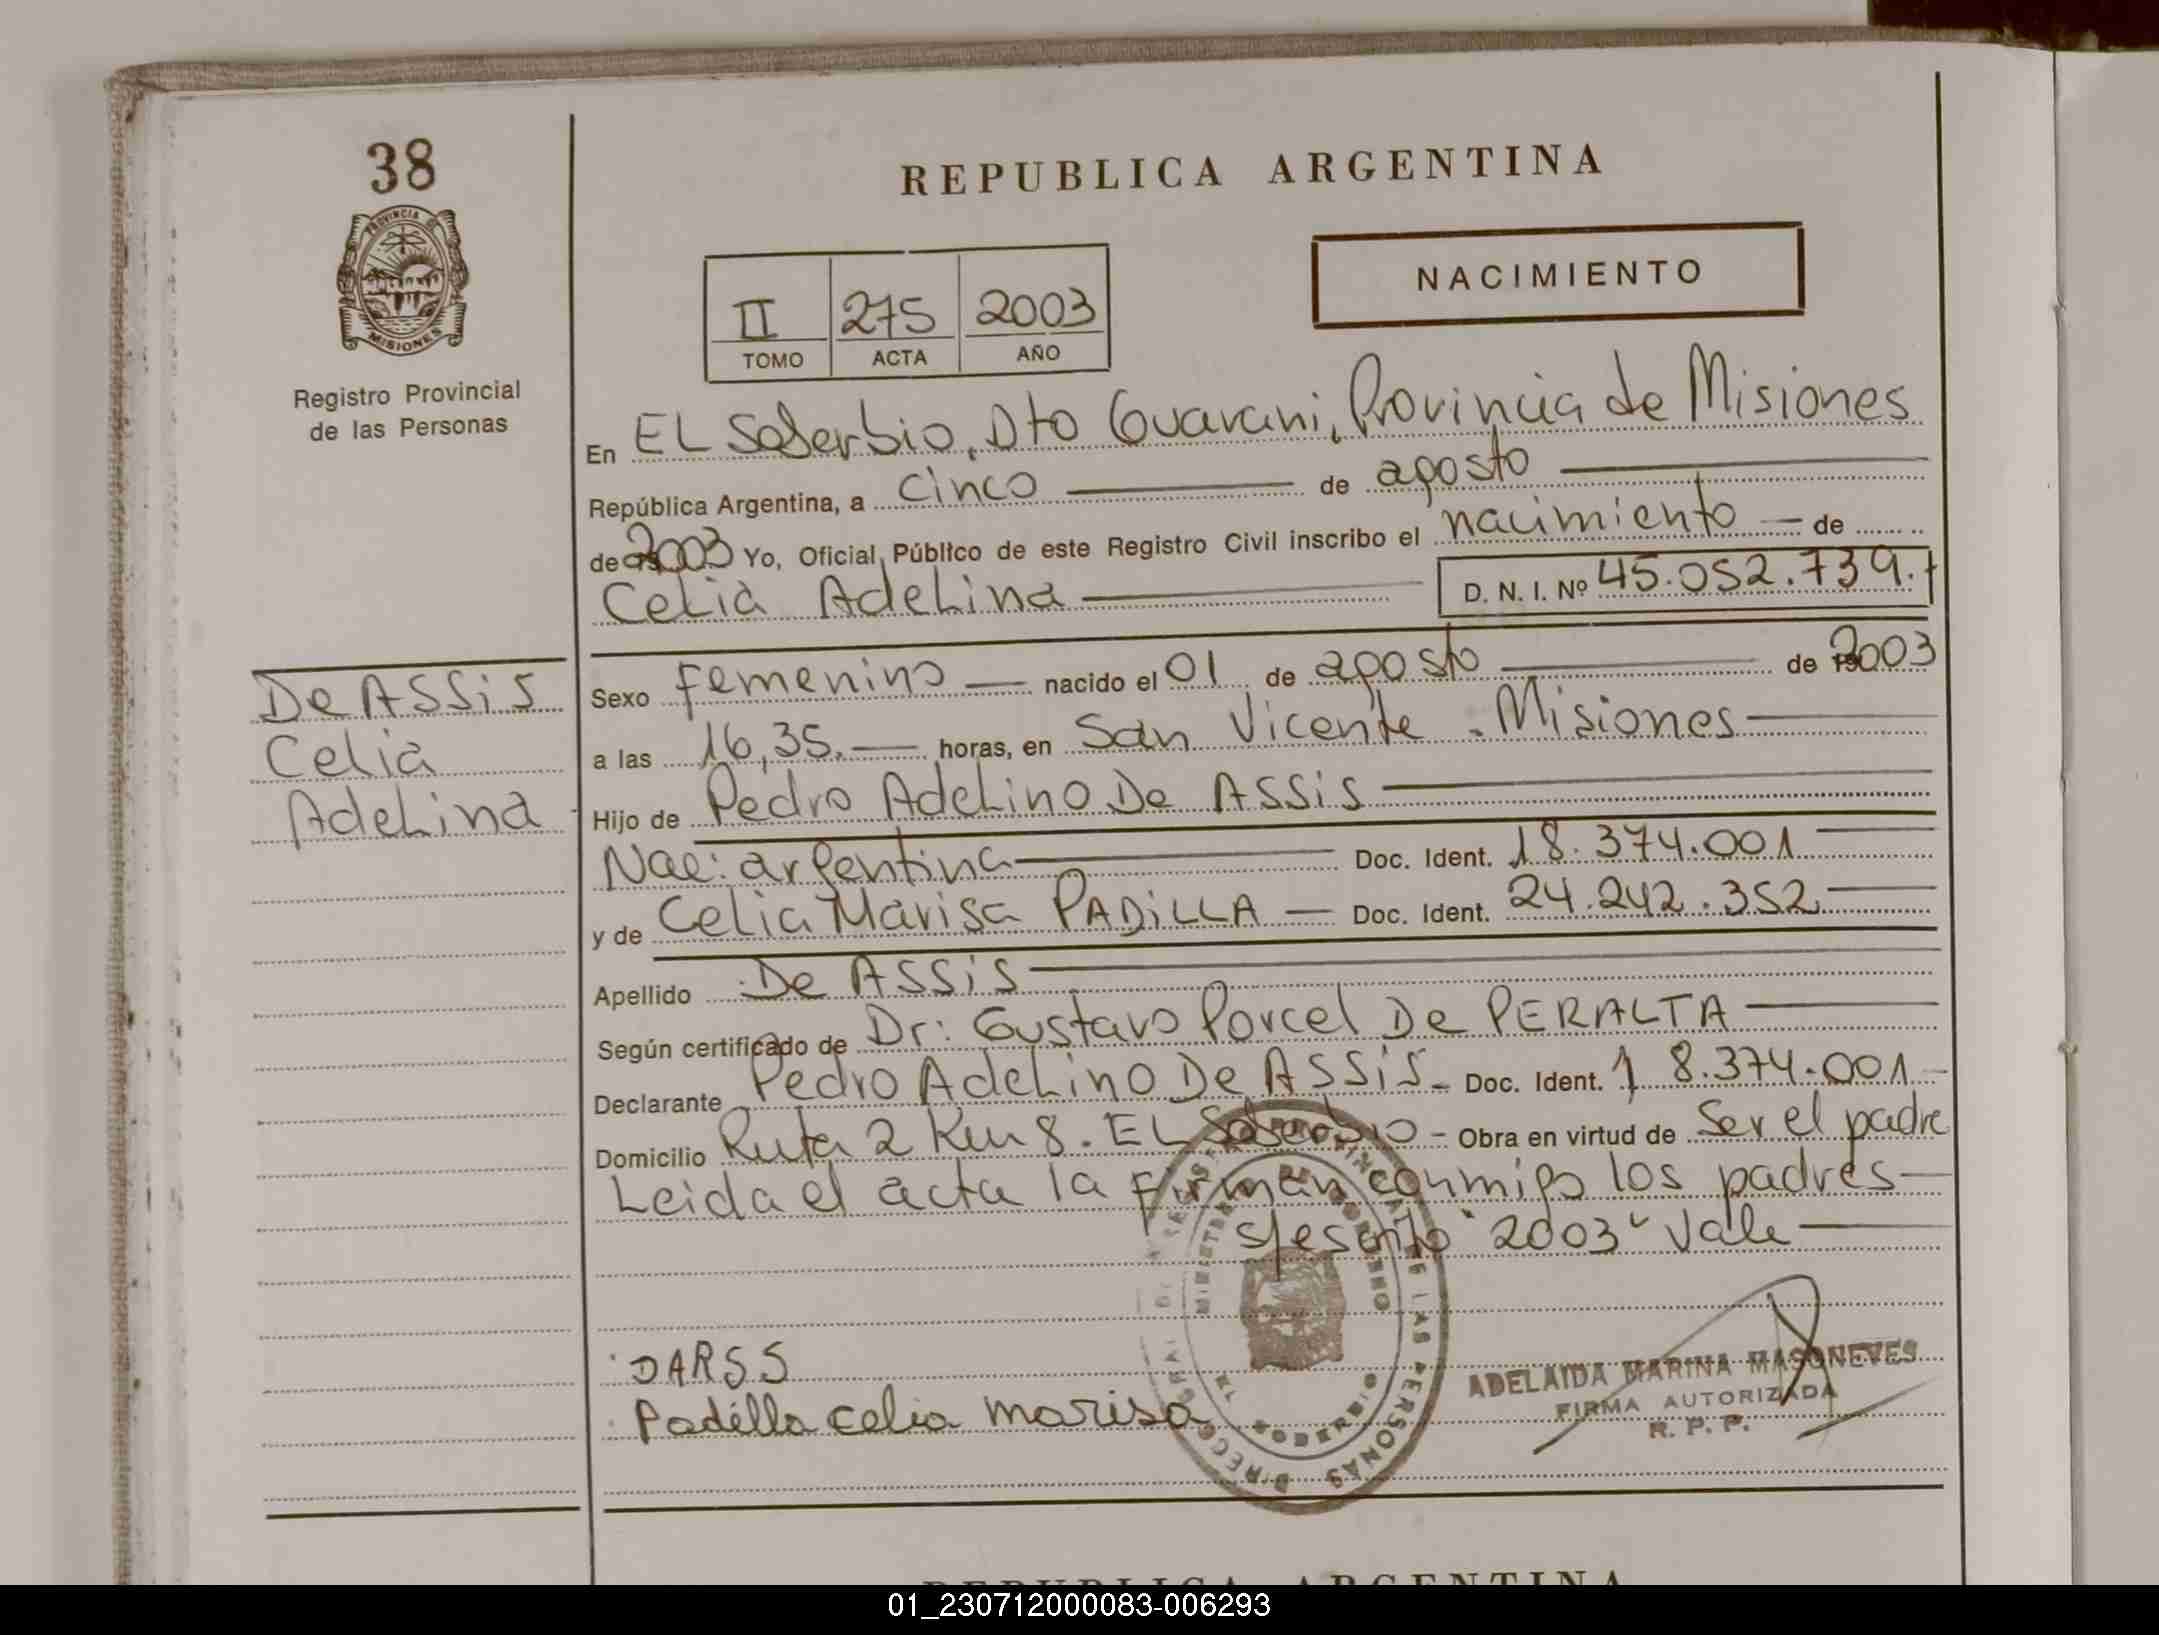 38
PROVINCIA DE
MISIONES
Registro Provincial
de las Personas
REPUBLICA ARGENTINA
NACIMIENTO
II 275 2003
TOMO ACTA AÑO
En EL Soberbio, Dto Guarani, Provincia de Misiones
República Argentina, a cinco de agosto
de 2003 Yo, Oficial Público de este Registro Civil inscribo el nacimiento de
Celia AdeLina D. N. I. Nº 45.052.739.
De ASSiS
Celia
AdeLina
Sexo femenino nacido el 01 de agosto de 2003
a las 16,35. horas, en San Vicente . Misiones
Hijo de Pedro AdeLino De ASSiS
Nac: argentina Doc. Ident. 18.374.001
y de CeLia Marisa PADiLLA Doc. Ident. 24.242.352
Apellido De ASSiS
Según certificado de Dr: Gustavo Porcel De PERALTA
Declarante Pedro AdeLino De ASSiS Doc. Ident. 18.374.001
Domicilio Ruta 2 Km 8. EL Soberbio - Obra en virtud de Ser el padre
Leida el acta la firman conmigo los padres
s/escrito "2003" Vale
DARSS
Padilla celia marisa
ADELAIDA MARINA MASONEVES
FIRMA AUTORIZADA
R. P. P.
REPUBLICA ARGENTINA
01_230712000083-006293